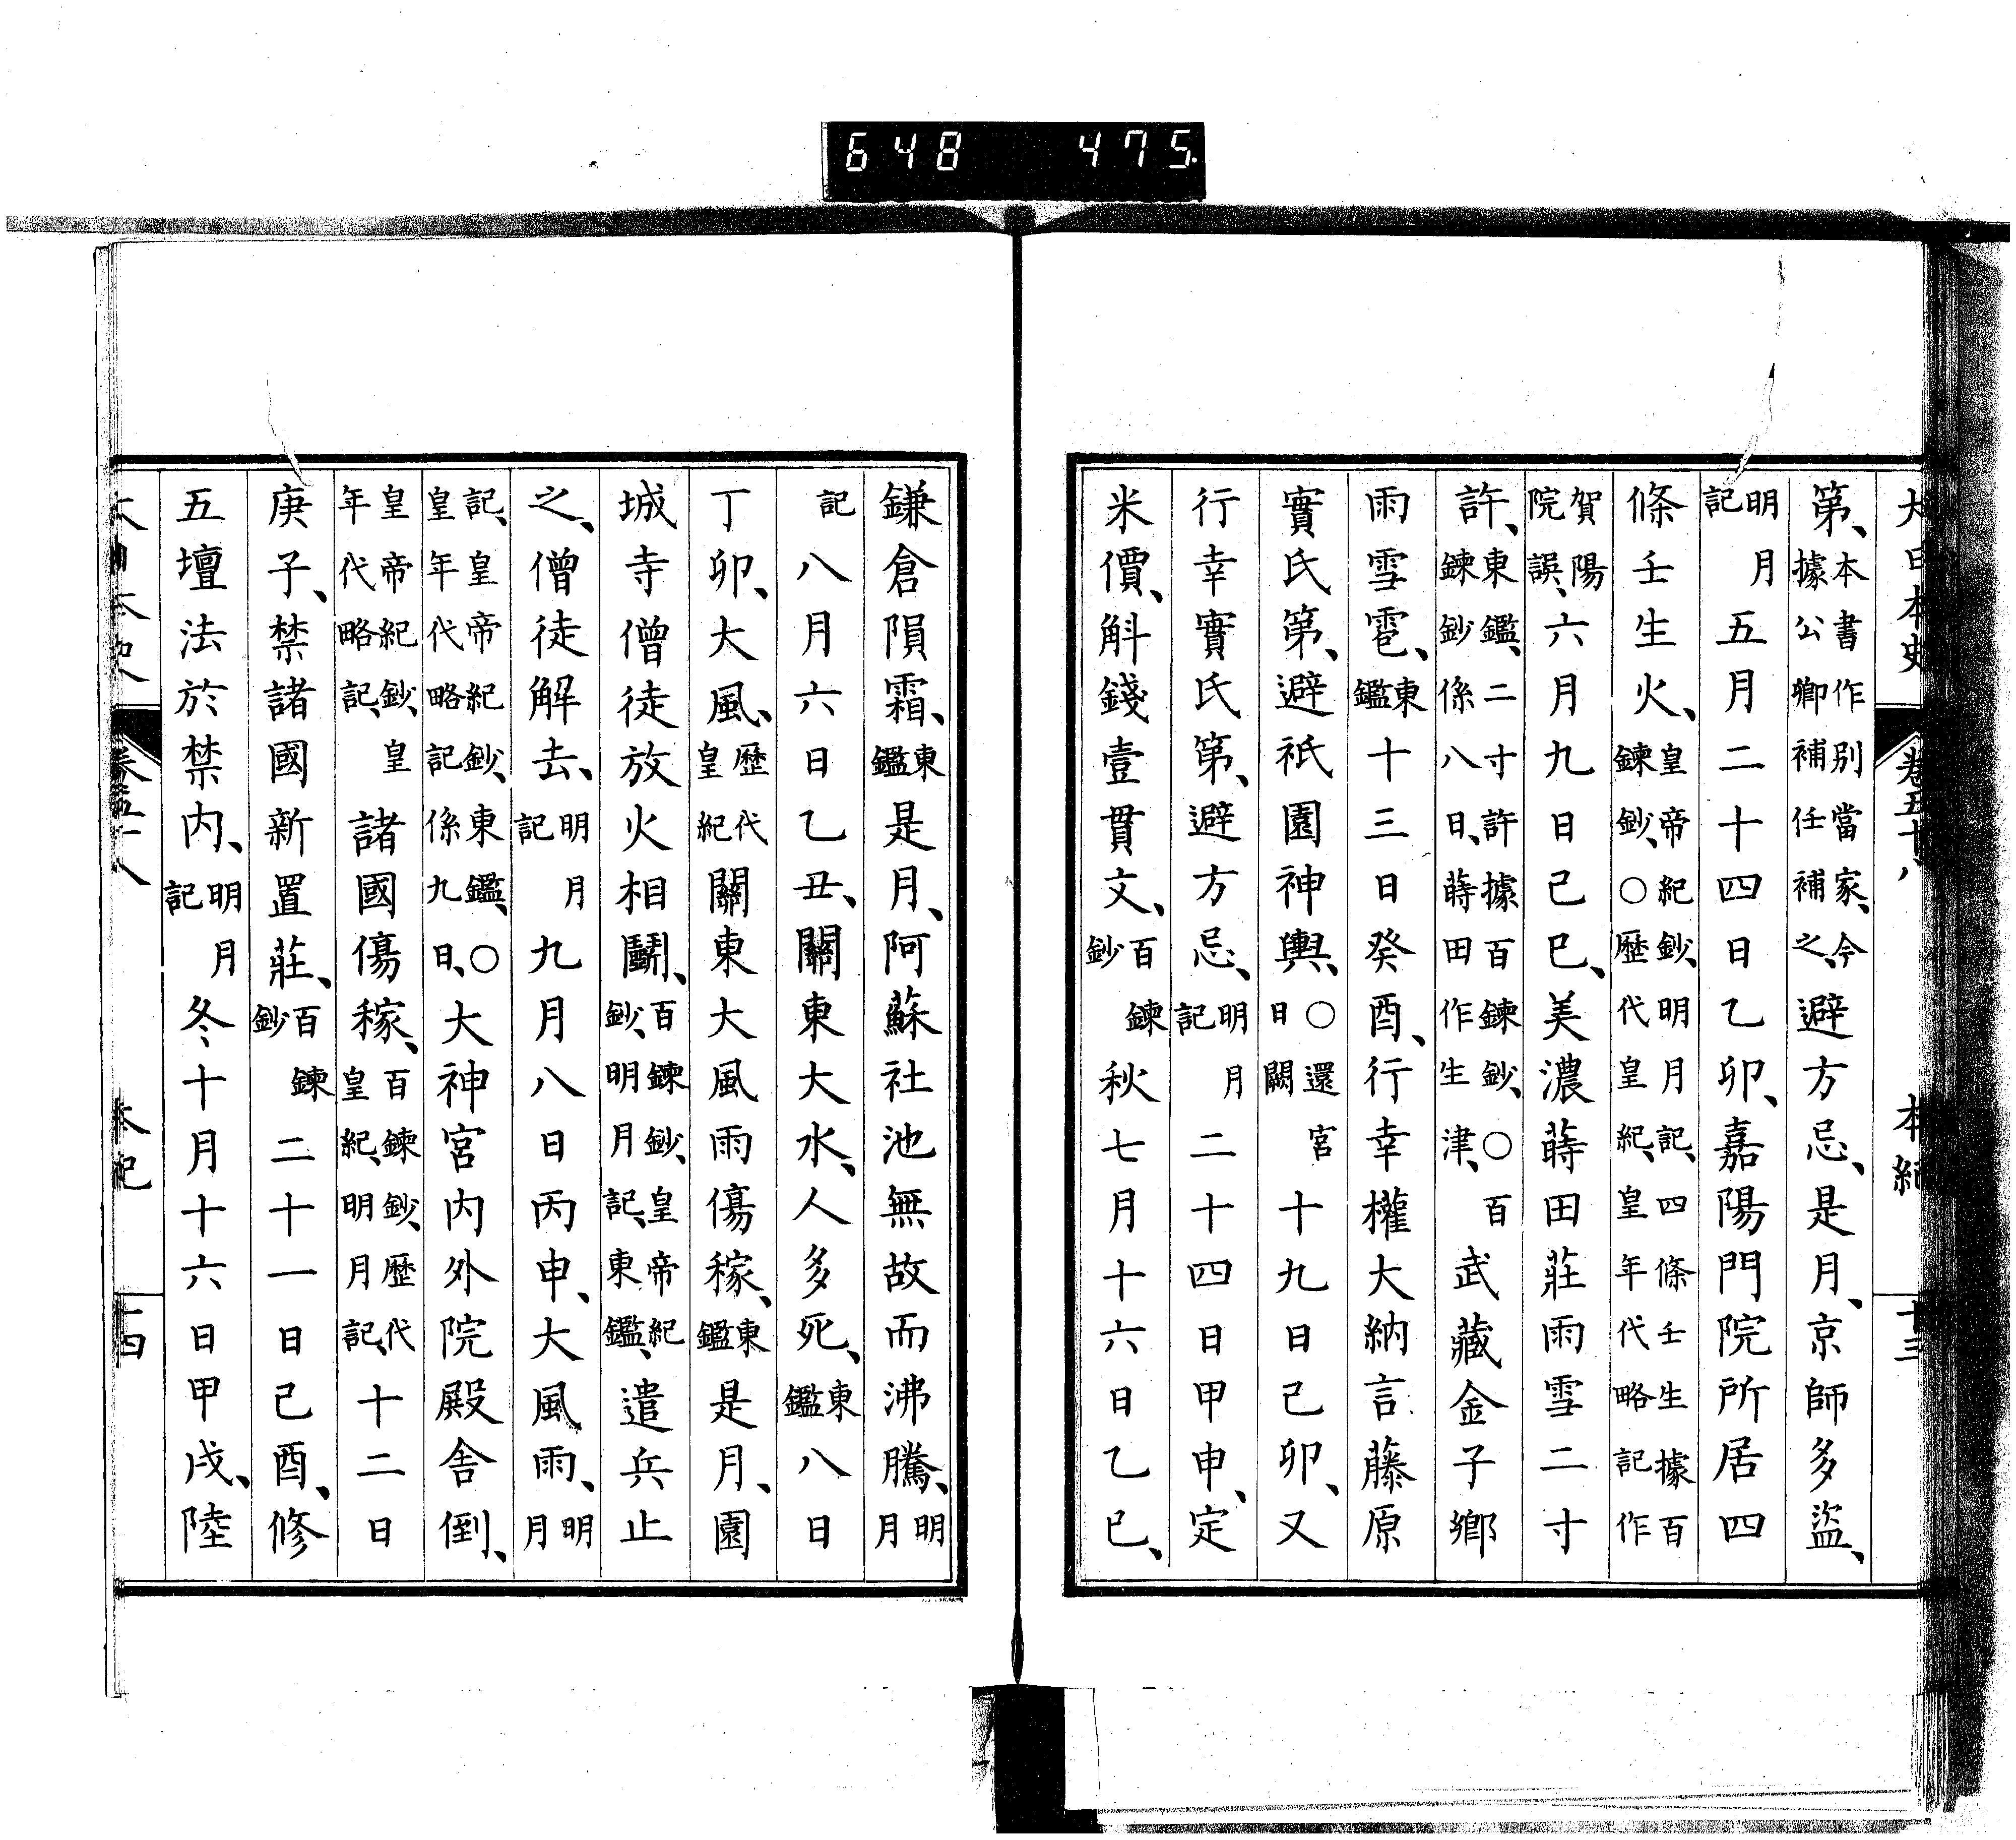 648 475.
大日本史 卷五十八 本紀 十三
第、本書作別當家、今據公卿補任補之、避方忌、是月、京師多盜、
明月記五月二十四日乙卯、嘉陽門院所居四
條壬生火、皇帝紀鈔、明月記、四條壬生據百鍊鈔、○歷代皇紀、皇年代略記作
賀陽院誤、六月九日己巳、美濃蒔田莊雨雪二寸
許、東鑑、二寸許據百鍊鈔、○百鍊鈔係八日、蒔田作生津、武藏金子鄉
雨雪雹、東鑑十三日癸酉、行幸權大納言藤原
實氏第、避祇園神輿、○還宮日闕十九日己卯、又
行幸實氏第、避方忌、明月記二十四日甲申、定
米價、斛錢壹貫文、百鍊鈔秋七月十六日乙巳、
鎌倉隕霜、東鑑是月、阿蘇社池無故而沸騰、明月
記八月六日乙丑、關東大水、人多死、東鑑八日
丁卯、大風、歷代皇紀關東大風雨傷稼、東鑑是月、園
城寺僧徒放火相鬪、百鍊鈔、皇帝紀鈔、明月記、東鑑、遣兵止
之、僧徒解去、明月記九月八日丙申、大風雨、明月
記、皇帝紀鈔、東鑑、○皇年代略記係九日、大神宮內外院殿舍倒、
皇帝紀鈔、皇年代略記、諸國傷稼、百鍊鈔、歷代皇紀、明月記、十二日
庚子、禁諸國新置莊、百鍊鈔二十一日己酉、修
五壇法於禁內、明月記冬十月十六日甲戌、陸
大日本史 卷五十八 本紀 十四